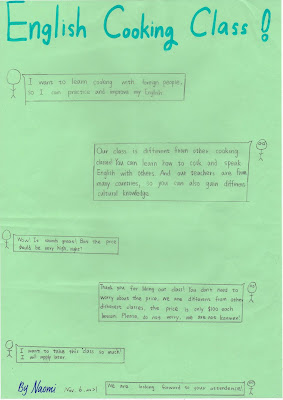 English Cooking Class!
I want to learn cooking with foreign people,
so I can practice and improve my English.
Our class is different from other cooking
class! You can learn how to cook and speak
English with others. And our teachers are from
many countries, so you can also gain different
cultural knowledge.
Wow! It sounds great! But the price
should be very high, right?
Thank you for liking our class! You don't need to
worry about the price. We are different from other
different classes, the price is only $100 each
lesson. Please, do not worry, we are not
I want to take this class so much!
I will apply later.
We are looking forward to your attendence!
By Naomi